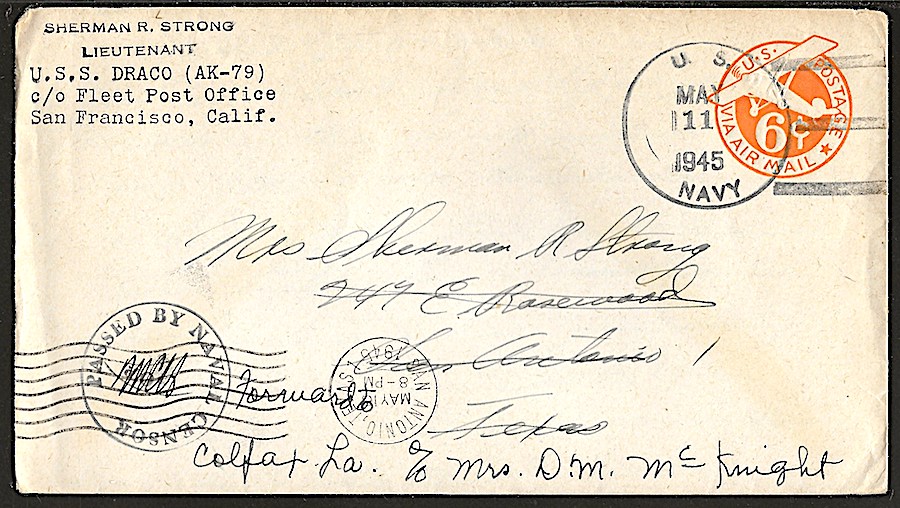 SHERMAN R. STRONG
LIEUTENANT
U.S.S. DRACO (AK-79)
c/o Fleet Post Office
San Francisco, Calif.
U. S.
MAY
11
1945
NAVY
U.S. POSTAGE
6¢
VIA AIR MAIL
Mrs Sherman R Strong
247 E Rosewood
San Antonio 1
Texas
PASSED BY NAVAL CENSOR
SAN ANTONIO, TEX.
MAY
8-PM
1945
Forward to
Colfax La. c/o Mrs. D.M. McKnight